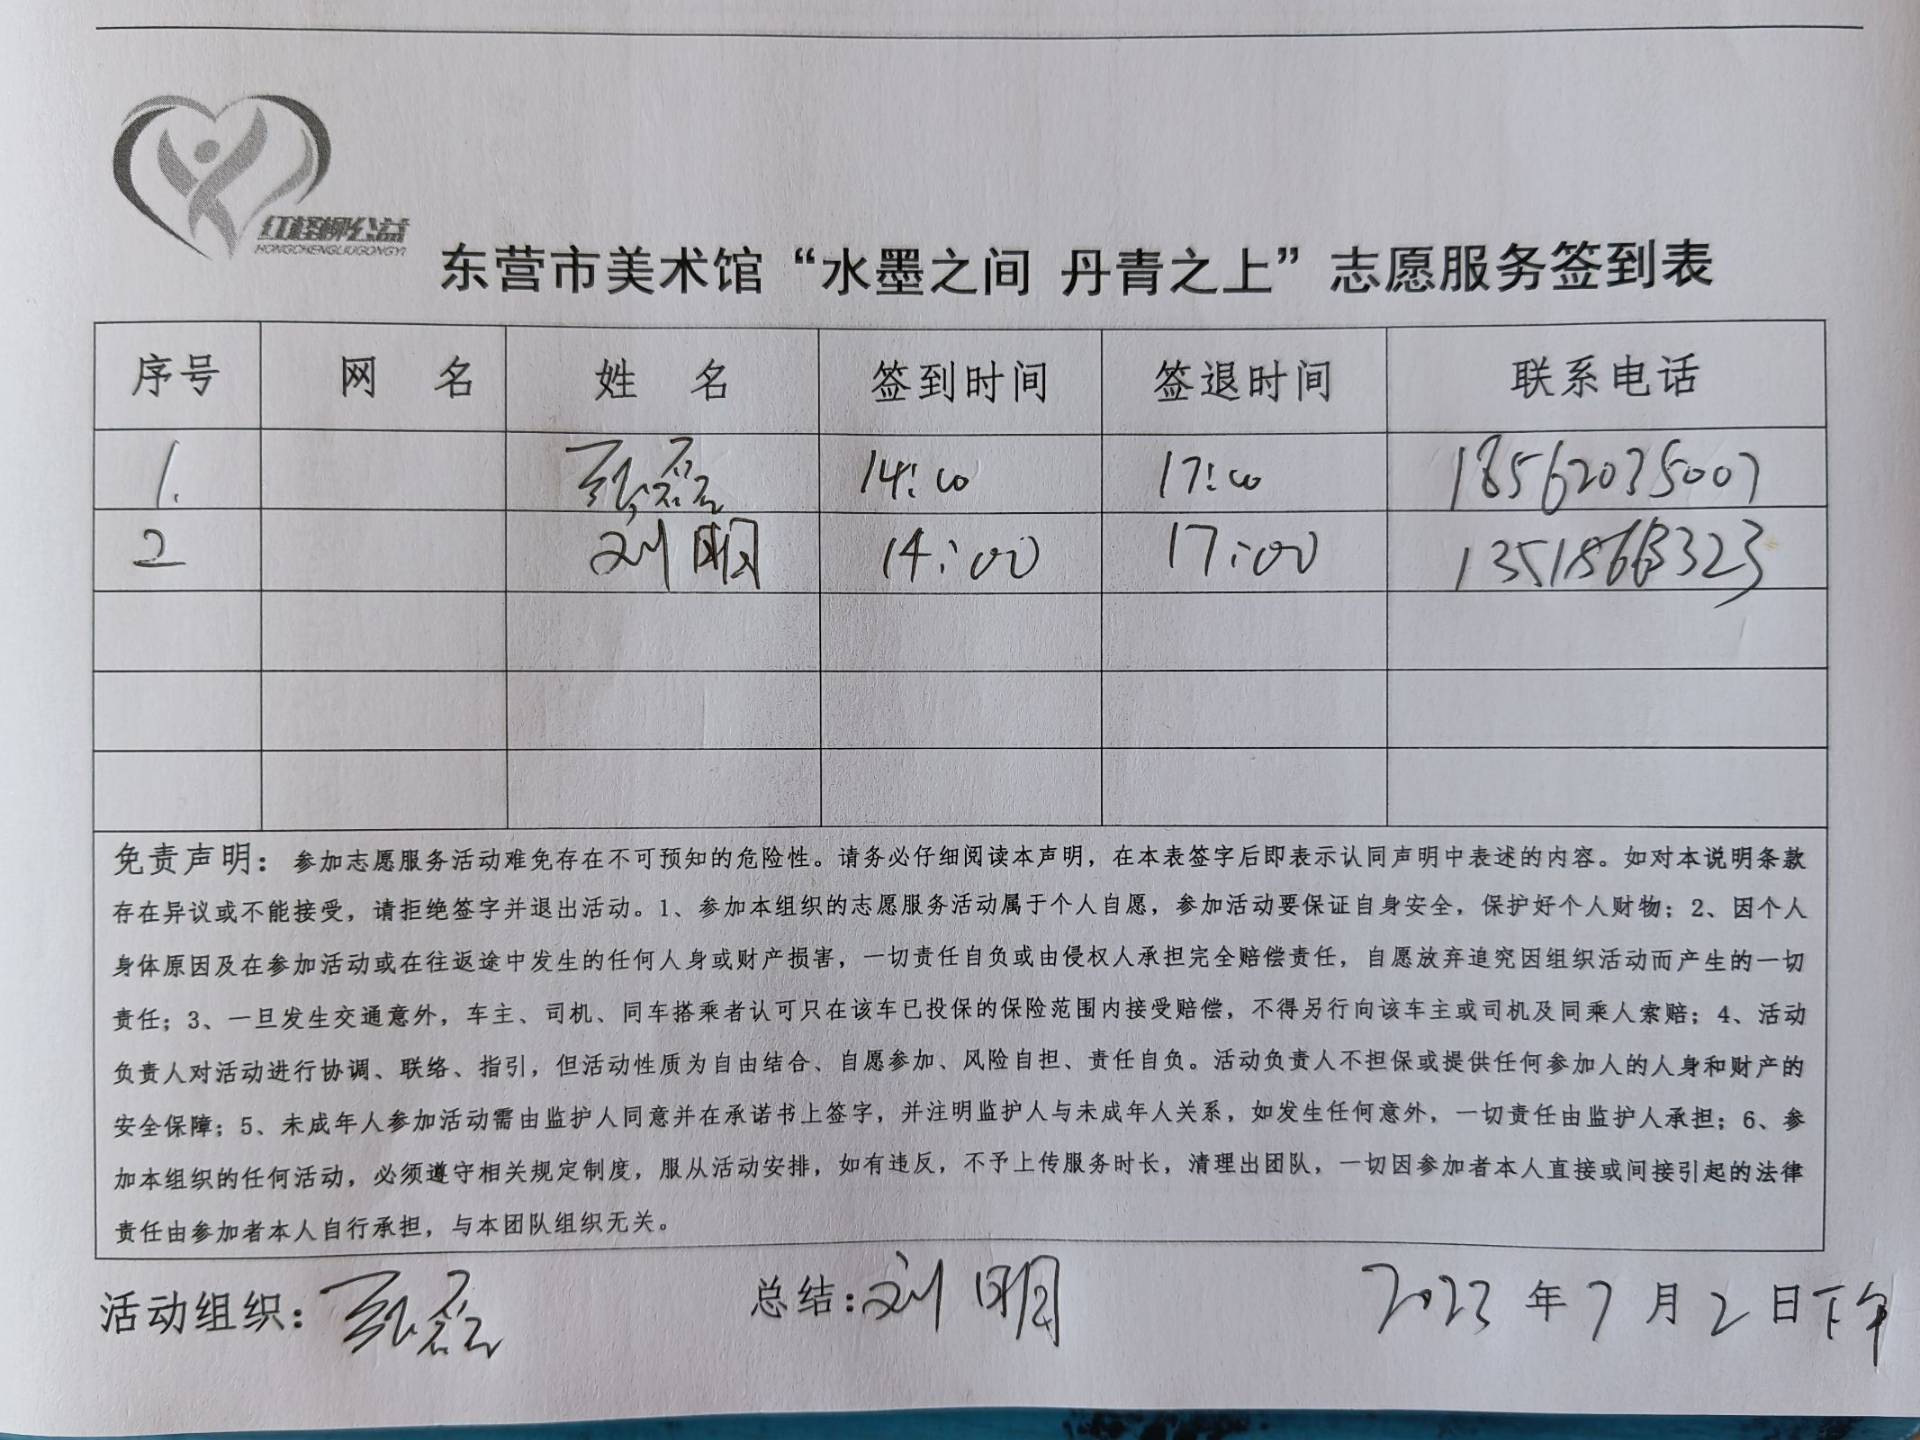 红柽柳公益
HONGCHENGLIUGONGYI
东营市美术馆“水墨之间 丹青之上”志愿服务签到表
序号 网 名 姓 名 签到时间 签退时间 联系电话
1. 张磊 14:00 17:00 18562035007
2 刘明 14:00 17:00
免责声明：参加志愿服务活动难免存在不可预知的危险性。请务必仔细阅读本声明，在本表签字后即表示认同声明中表述的内容。如对本说明条款
存在异议或不能接受，请拒绝签字并退出活动。1、参加本组织的志愿服务活动属于个人自愿，参加活动要保证自身安全，保护好个人财物；2、因个人
身体原因及在参加活动或在往返途中发生的任何人身或财产损害，一切责任自负或由侵权人承担完全赔偿责任，自愿放弃追究因组织活动而产生的一切
责任；3、一旦发生交通意外，车主、司机、同车搭乘者认可只在该车已投保的保险范围内接受赔偿，不得另行向该车主或司机及同乘人索赔；4、活动
负责人对活动进行协调、联络、指引，但活动性质为自由结合、自愿参加、风险自担、责任自负。活动负责人不担保或提供任何参加人的人身和财产的
安全保障；5、未成年人参加活动需由监护人同意并在承诺书上签字，并注明监护人与未成年人关系，如发生任何意外，一切责任由监护人承担；6、参
加本组织的任何活动，必须遵守相关规定制度，服从活动安排，如有违反，不予上传服务时长，清理出团队，一切因参加者本人直接或间接引起的法律
责任由参加者本人自行承担，与本团队组织无关。
活动组织：张磊 总结：刘明 2023年7月2日下午